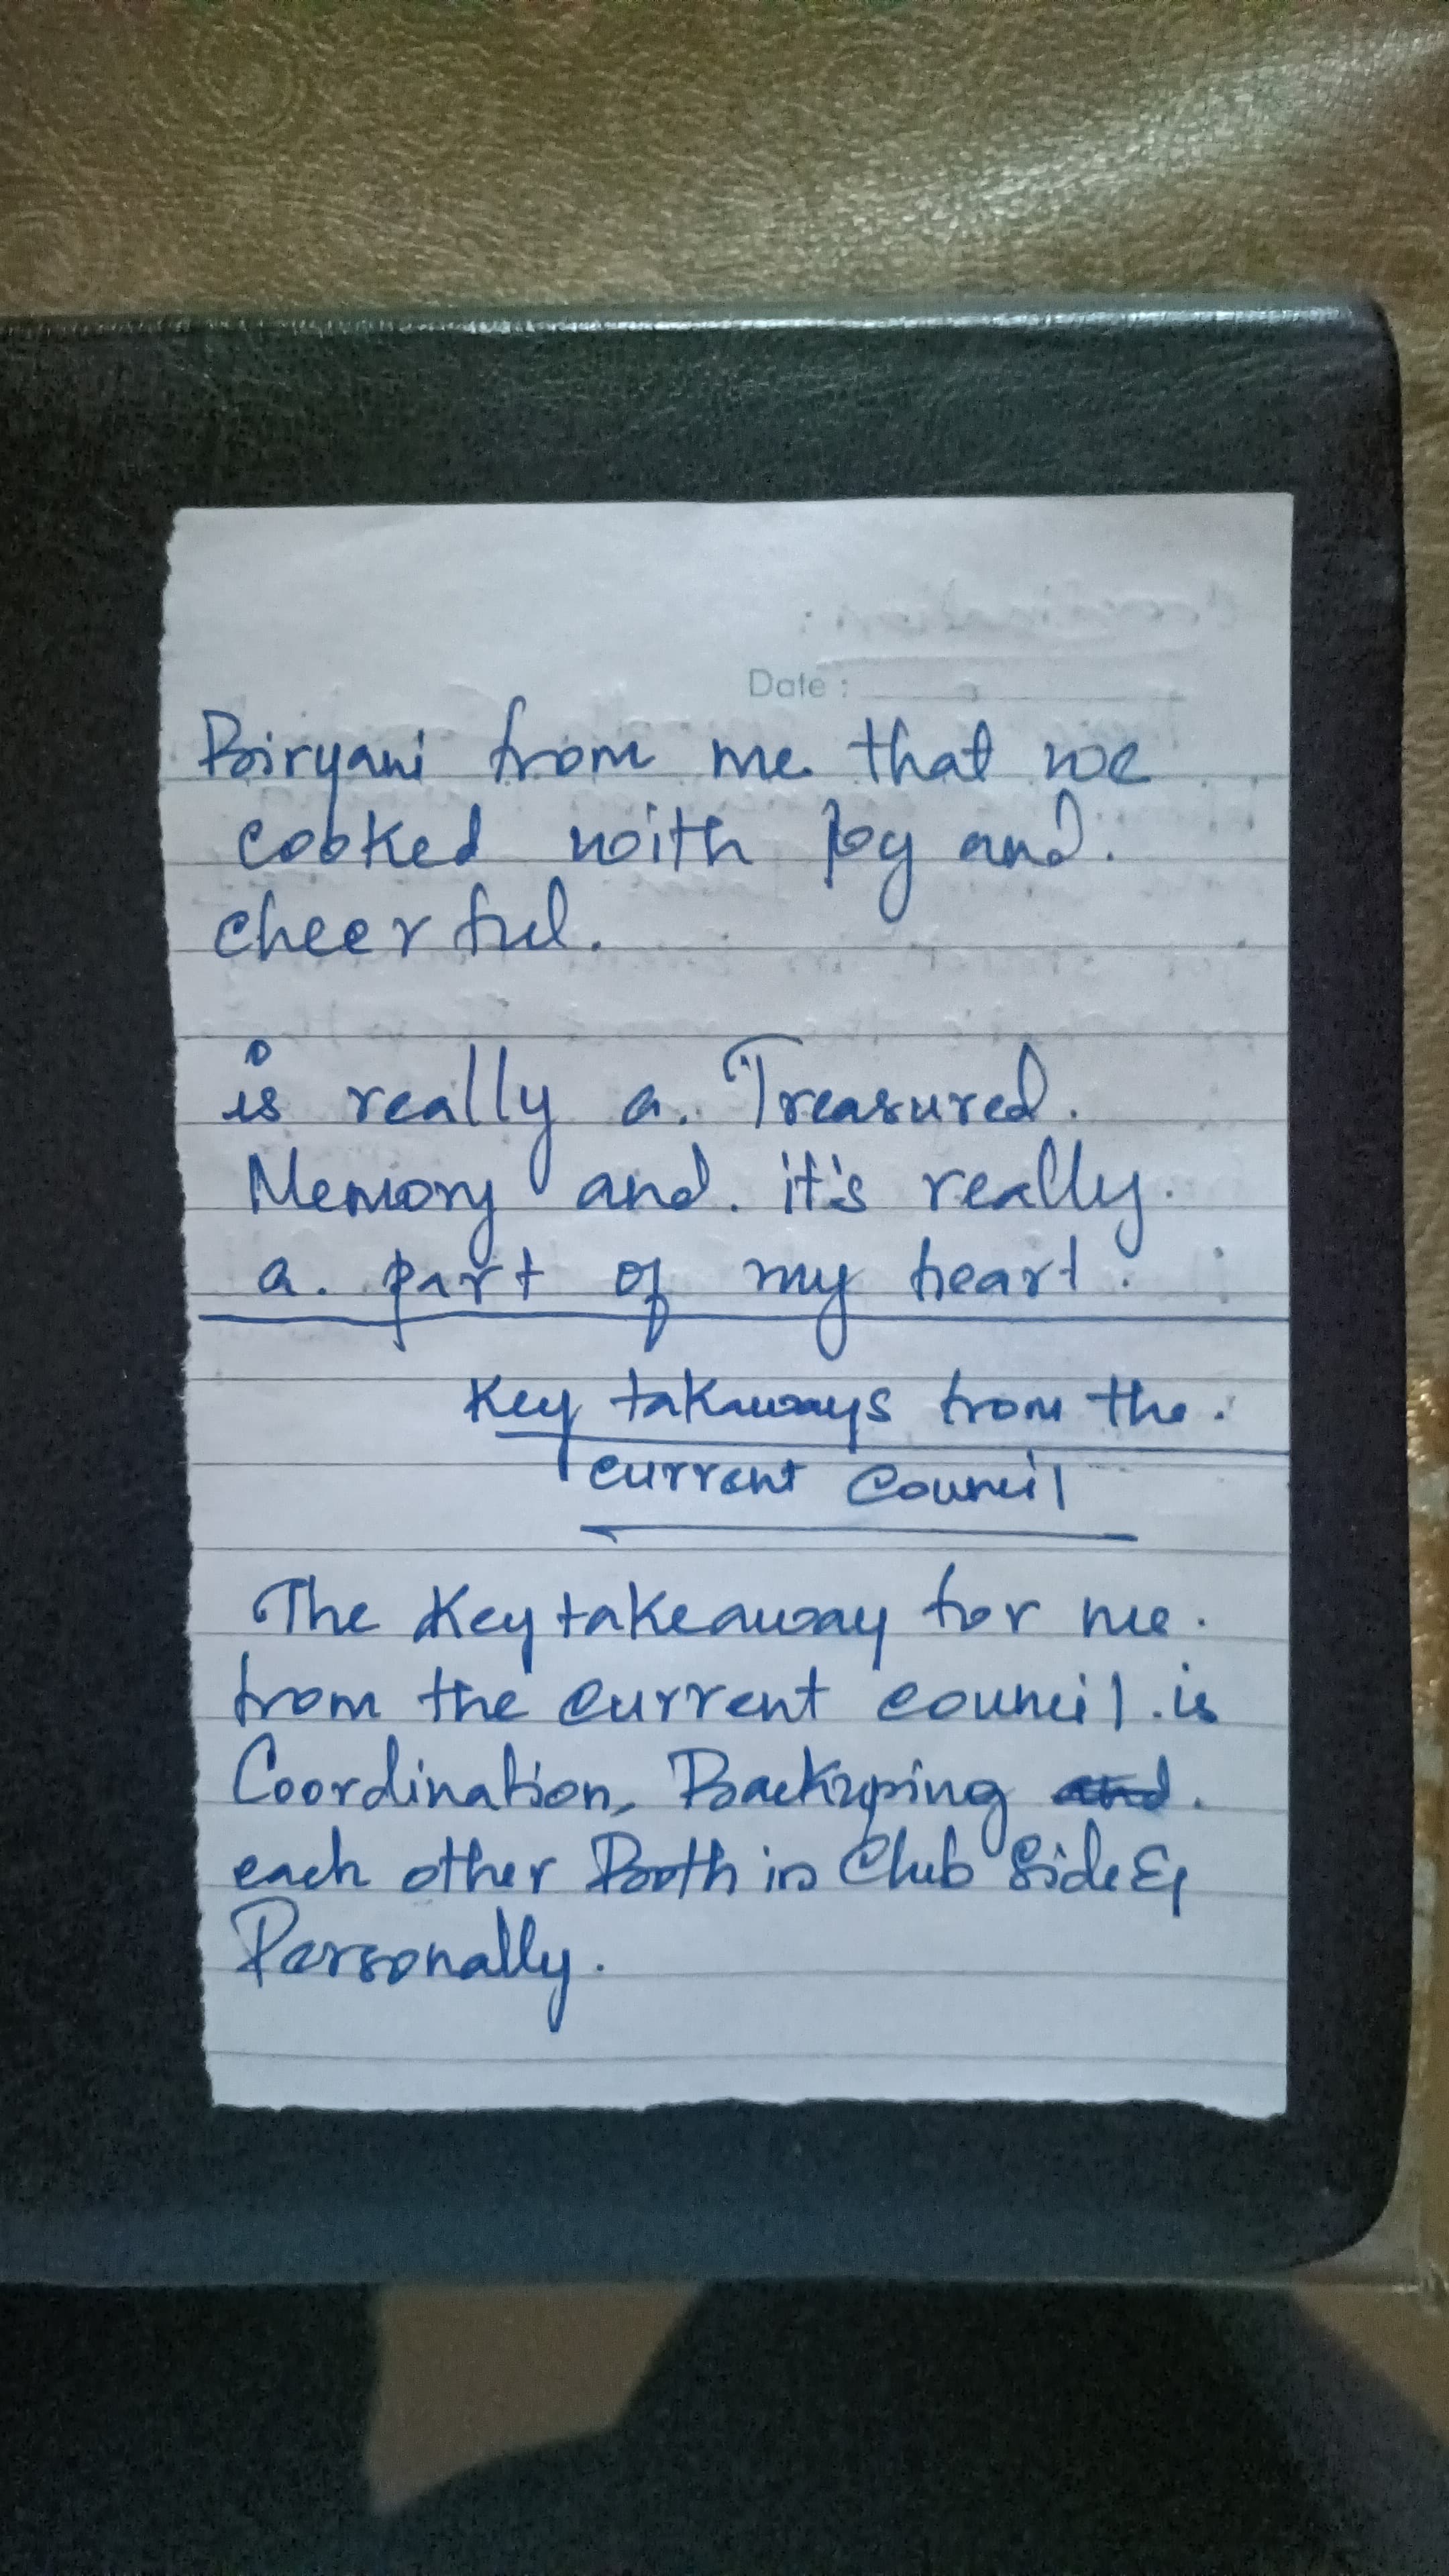 Date :
Biryani from me that we
cooked with joy and.
cheerful.
is really a. Treasured.
Memory and. it's really.
a. part of my heart.
Key takaways from the.
current Council
The Key takeaway for me.
from the current council. is
Coordination, Backuping and.
each other Both in Club Side &
Personally.